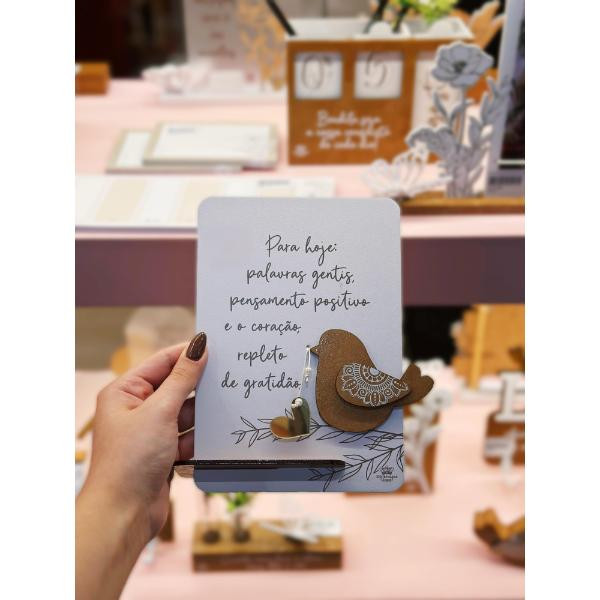 Para hoje:
palavras gentis,
pensamento positivo
e o coração,
repleto
de gratidão
Bendita seja
a nossa
de cada dia!